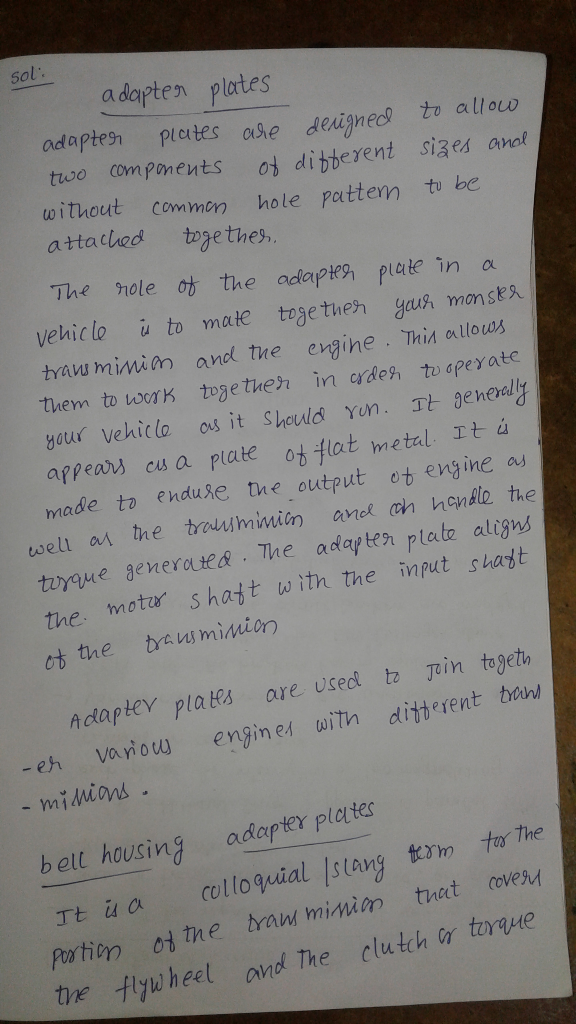 sol:
adapter plates
adapter plates are designed to allow
two components of different sizes and
without common hole pattern to be
attached together.
The role of the adapter plate in a
vehicle is to mate together your monster
transmission and the engine. This allows
them to work together in order to operate
your vehicle as it should run. It generally
appears as a plate of flat metal. It is
made to endure the output of engine as
well as the transmission and can handle the
torque generated. The adapter plate aligns
the motor shaft with the input shaft
of the transmission
Adapter plates are used to Join togeth
-er various engines with different trans
-missions.
bell housing adapter plates
It is a colloquial/slang term for the
portion of the transmission that covers
the flywheel and the clutch or torque